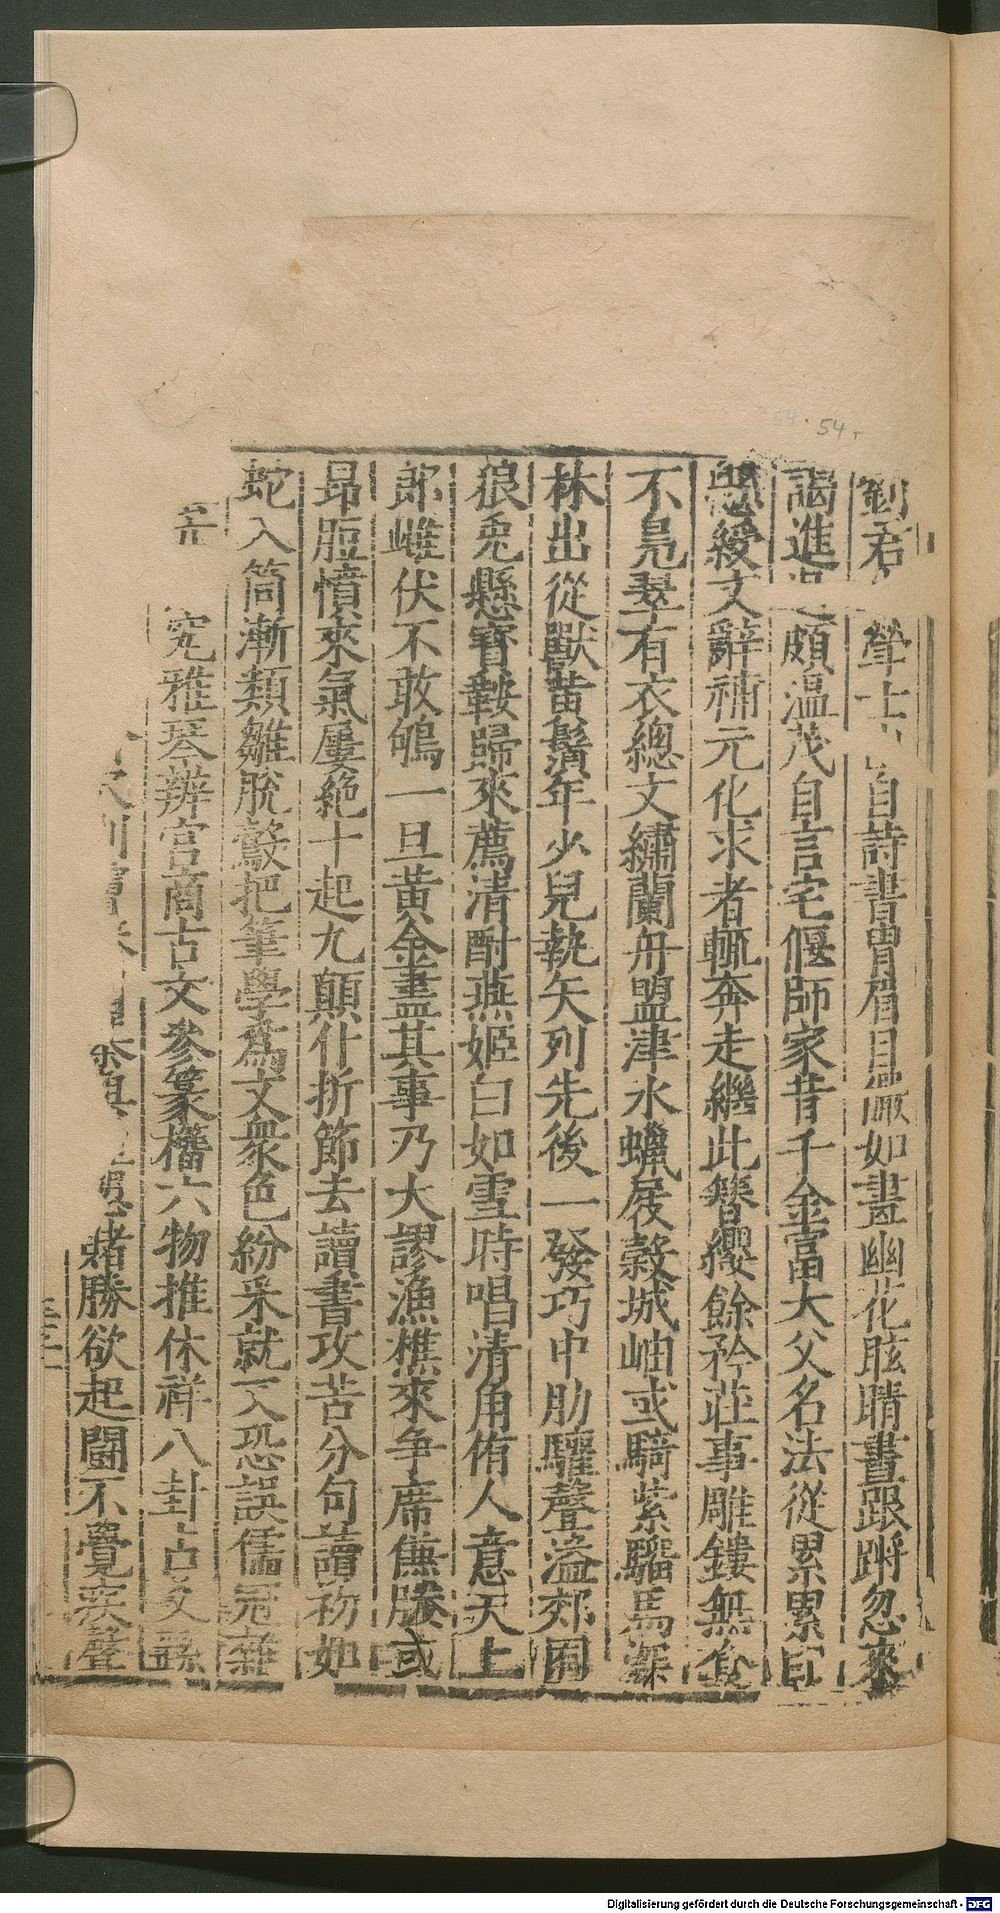 54r
劉君 聳士 自詩書胃眉目 如畫幽花眩晴晝跟蹡忽來
謁進 頗溫茂自言宅偃師家昔千金富大父名法從累累印
懸綬文辭補元化求者輒奔走繼此簪纓餘矜莊事雕鏤無食
不鳧翠有衣總文繡蘭舟盟津水蠟屐穀城岫或騎紫騮馬深
林出從獸黄鬚年少兒執矢列先後一發巧中肋驩聲溢郊囿
狼兎懸寶鞍歸來薦清酎燕姬白如雪時唱清角侑人意天上
郎雌伏不敢鴝一旦黄金盡其事乃大謬漁樵來争席僬勝或
昻脰憤來氣屢絶十起九顛仆折節去讀書攻苦分句讀初如
蛇入筒漸類雛脱鷇把筆學爲文衆色紛釆就又恐誤儒冠雜
究雅琴辨宮商古文參篆籀六物推休祥八卦占爻繇
賭勝欲起鬬不覺疾聲
Digitalisierung gefördert durch die Deutsche Forschungsgemeinschaft - DFG